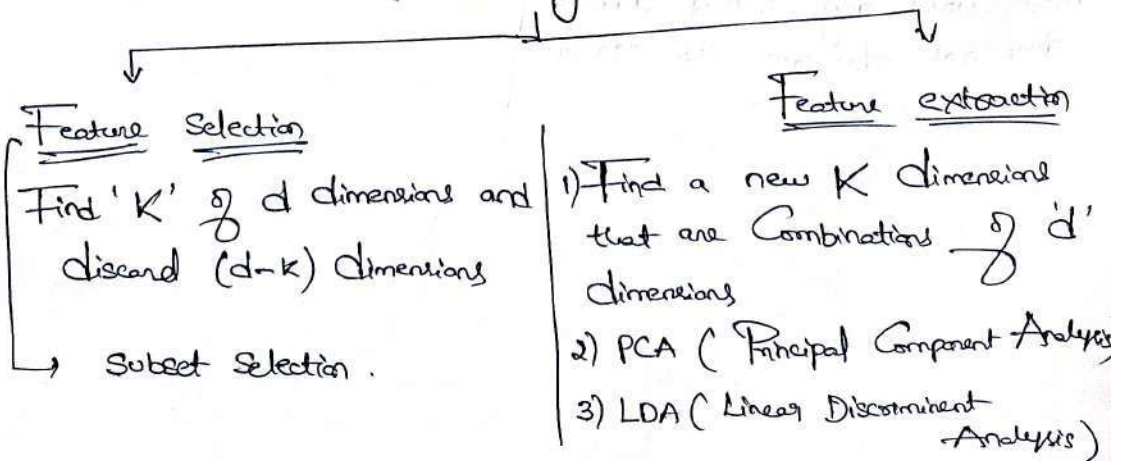 Feature Selection
Find 'K' of d dimensions and
discard (d-k) dimensions
→ Subset Selection.
Feature extraction
1) Find a new K dimensions
that are Combinations of 'd'
dimensions
2) PCA ( Principal Component Analysis
3) LDA ( Linear Discriminent
Analysis)